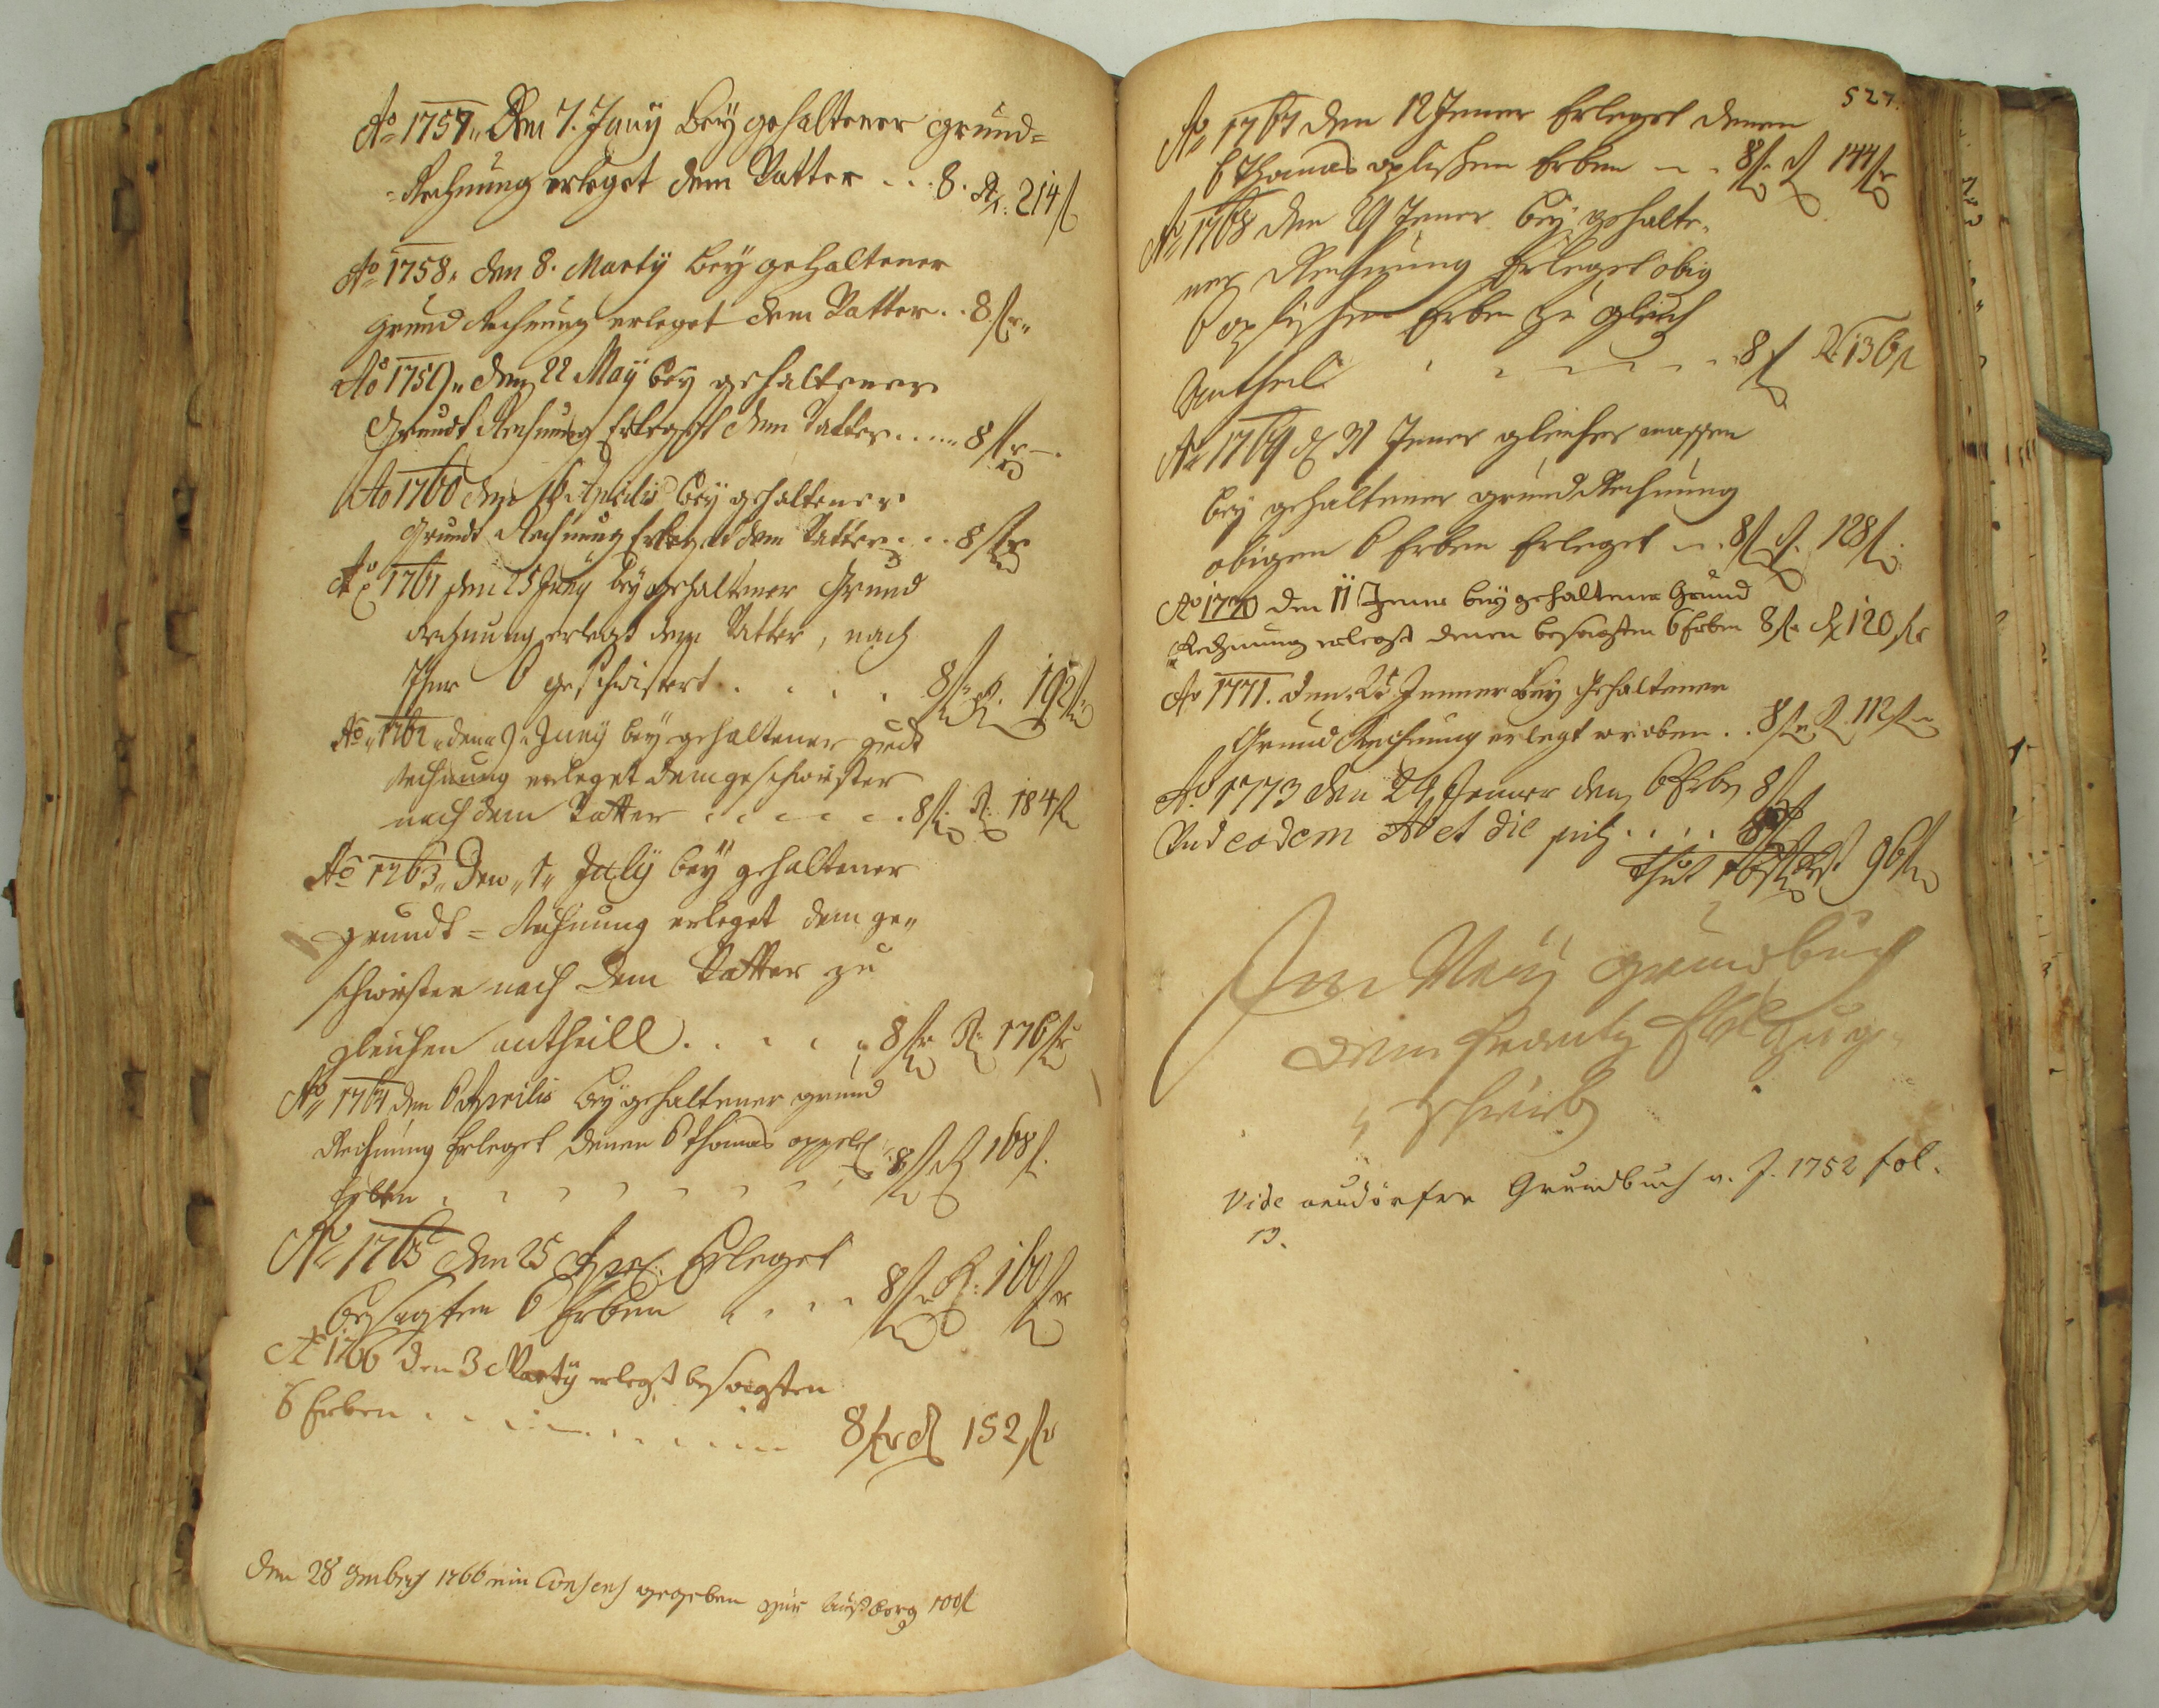 Ao 1757 „ Den 7. Juny bey gehaltener grund=
=Rechnung erleget dem Vatter . . . 8. R. 214 f
Ao 1758 „ den 8. Marty bey gehaltener
grund Rechnung erleget dem Vatter . . 8 fr „
Ao 1759 „ den 22 May bey gehaltener
Grundt Rechnung Erleget dem Vatter . . . . 8 fr
Ao 1760 den 16 Aprilis bey gehaltener
grundt Rechnung Erleget dem Vatter . . . 8 fr
Ao 1761 den 25 Juny bey gehaltener Grund
rechnung erlegt dem Vatter, nach
Ihm 6 geschwistert . . . . 8 fr R. 192 fr
Ao „ 1762 „ den 9 Juny bey gehaltener grdt
rechnung erleget dem geschwister
nach dem Vatter . . . . . . 8 f. R. 184 f
Ao 1763 „ Den „ 1 „ July bey gehaltener
grundt = Rechnung erleget dem ge„
schwister nach dem Vatter zu
gleichen antheill . . . . . 8 fr R 176 fr
Ao „ 1764 den 6 Aprilis bey gehaltener grund
Rechnung Erleget denen 6 Thomas
Erben . . . . . . . 8 f R 168 f.
Ao 1765 den 25 Apr. Erleget
besagten 6 Erben . . . . 8 fr R. 160 fr
Ao 1766 den 3 Marty erlegt besagten
6 Erben . . . . . . . . . . 8 fr R 152 fr
den 28 1766 ein Consens gegeben 100 f
527.
Ao 1767 den 12 Jener Erleget denen
6 Thomas Erben . . 8 fr R 144 fr
Ao 1768 den 29 Jener bey gehalte-
ner Rechnung Erleget obig
6 Erben zu gleich
Antheil . . . . . . . 8 f R 136 f
Ao 1769 d 31 Jener gleicher massen
bey gehaltener grund Rechnung
obigen 6 Erben Erleget . . . 8 f R. 128 f.
Ao 1770 den 11 Jener bey gehaltener Grund
Rechnung erlegt denen besagten 6 Erben 8 fr R 120 fr
Ao 1771. den 25 Jenner bey Gehaltener
Grund Rechnung erlegt wie oben . . 8 fr R 112 fr
Ao 1773 den 29 Jenner den 6 Erben 8 f
Und eodem Ao et die . . . . 8 f
thut 16 f Rest 96 f
Im Neuen grundbuch
dem Frantz zuge-
schrieb
Vide neudörfer Grundbuch v. J. 1752 fol.
13.